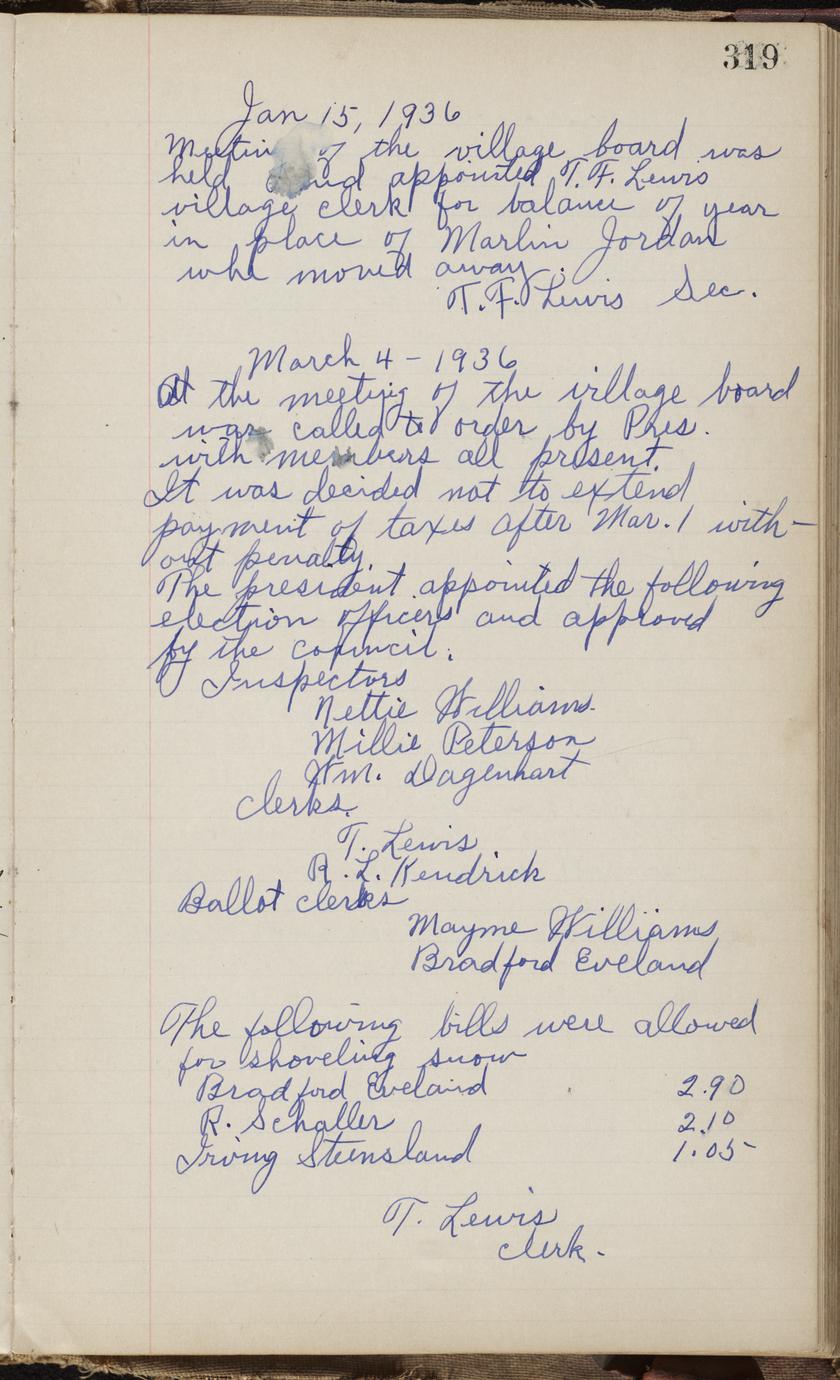 319
Jan 15, 1936
Meeting of the village board was
held and appointed T. F. Lewis
village clerk for balance of year
in place of Marlin Jordan
who moved away.
T. F. Lewis Sec.
March 4 - 1936
At the meeting of the village board
was called to order by Pres.
with members all present.
It was decided not to extend
payment of taxes after Mar. 1 with-
out penalty.
The president appointed the following
election officers and approved
by the council.
Inspectors
Nettie Williams
Millie Peterson
Wm. Dagenhart
Clerks.
T. Lewis
R. L. Kendrick
Ballot clerks
Mayme Williams
Bradford Eveland
The following bills were allowed
for shoveling snow
Bradford Eveland 2.90
R. Schaller 2.10
Irving Steensland 1.05
T. Lewis
Clerk.